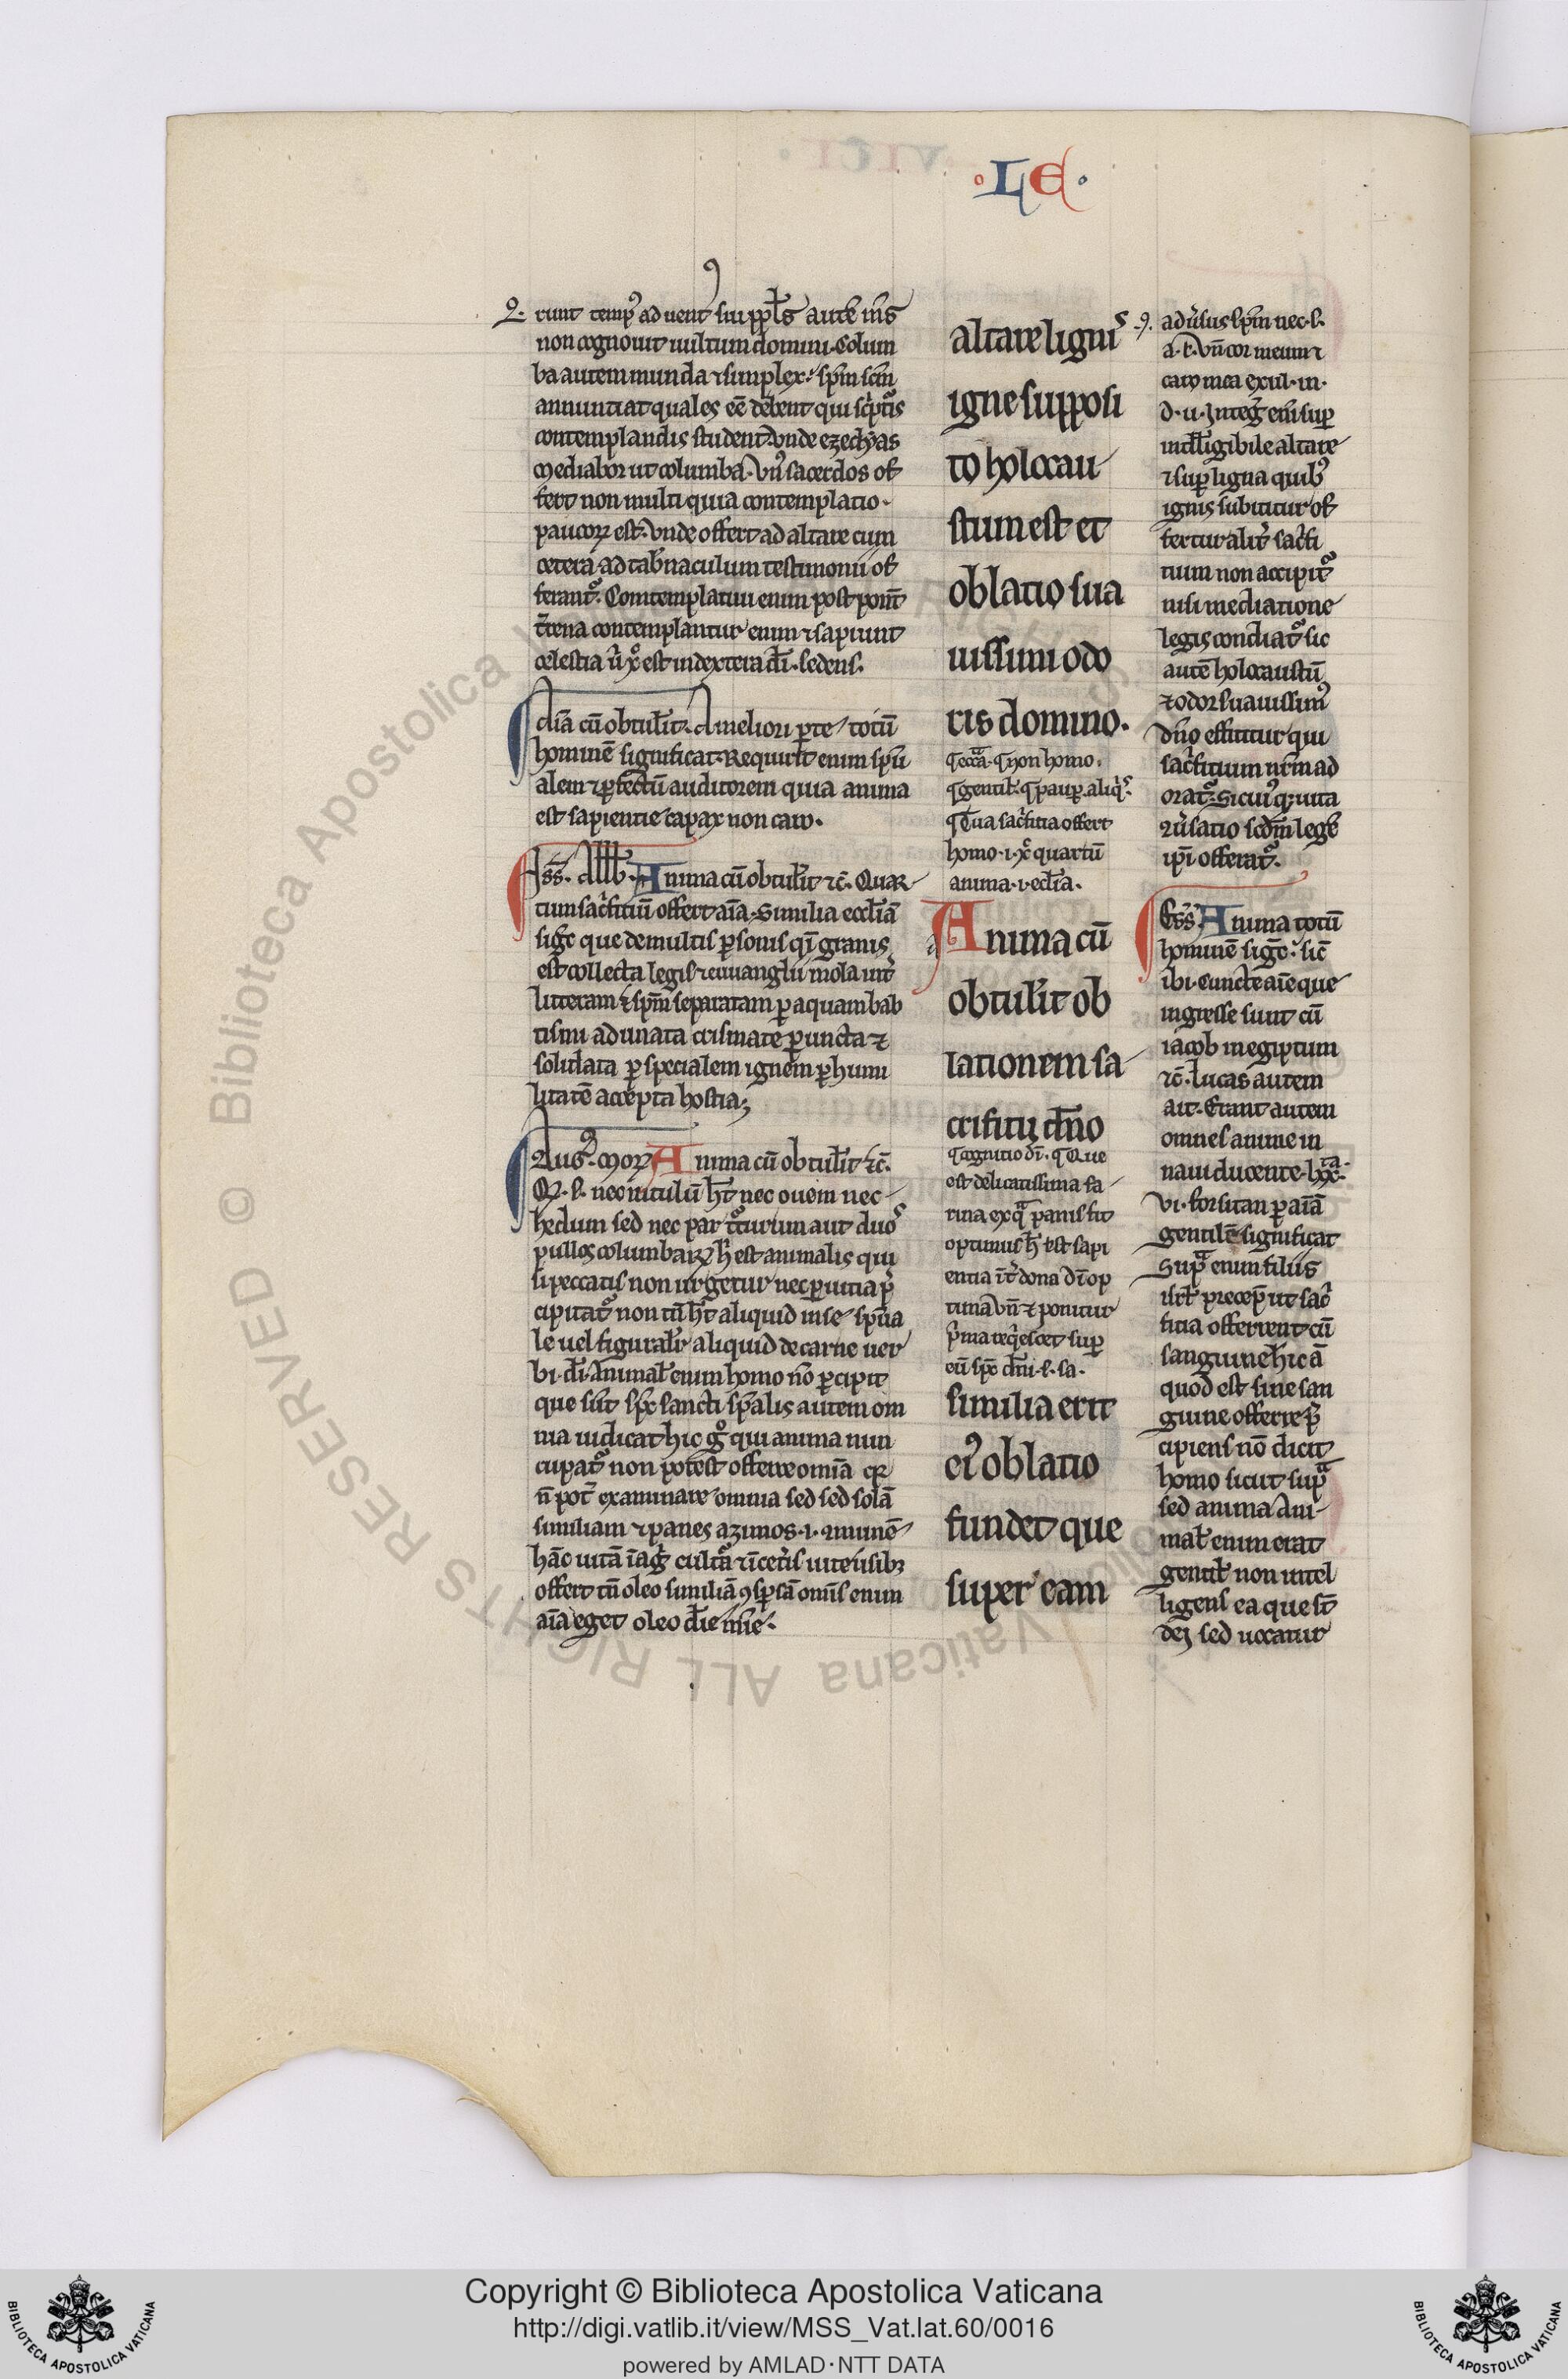 ·LE·
runt temp᷒ aduent᷒ sui pp̄ls̄ aute͂ m̄s
non cognouit uultum domini. Colum
ba autem munda ⁊ simplex: sp̄m sc̄m
annuntiat quales eē debent qui sc̄ptis
contemplandis student. vnde ezechyas
Mediabor ut columba. Vn᷒ sacerdos of
fert non multi quia contemplatio
paucoꝝ est. vnde offert ad altare cum
cetera ad tab̄naculum testimonii of
ferant᷒. Contemplatiui enim post pon̄t
t̄rena contemplantur enim ⁊ sapiunt
celestia u᷒ xp̄c est in dextera dī. sedens.
aīa cū obtul᷒it. A meliori ꝑte totū
hominē significat. Requirit enim sp̄u
alem ⁊ ꝑfectū auditorem quia anima
est sapientie capax non caro.
Anima cū obtul᷒it ⁊c̄. Quar
tum sac̄ficiū offert aīa. Similia eccl̄iā
sigc̄ que de multis ꝑsonis q̄i granis
est collecta legis ⁊ euuanglii mola int᷒
litteram ⁊ sp̄m separatam ꝑ aquam bab
tismi adunata crismate ꝑuncta ⁊
solidata ꝑ specialem ignem ꝑ humi
litatē accepta hostia;
Aug᷒. Anima cū obtul᷒it ⁊c̄.
nec uitulū h̄t nec ouem nec
hedum sed nec par t᷒turum aut duos
pullos columbaꝝ h᷒ est animalis qui
si peccatis non urgetur nec ꝑ uitia p̄
cipitat᷒ non tn̄ h̄t aliquid in se sp̄ua
le uel figural᷒r aliquid de carne uer
bi. dī. Animal᷒ enim homo nō ꝑcipit
que sūt sp̄c sancti sp̄alis autem om
nia iudicat hic g᷒ qui anima nun
cupat᷒ non potest offerre omīa qꝛ
n̄ pot᷒ examinare omnia sed sed solā
similiam ⁊ panes azimos. i.
offert cū oleo similiā ꝯsp̄sā omīs enim
aīa eget oleo dīe mīe.
altare lignis
igne supposi
to holocau
stum est et
oblatio sua
uissimi odo
ris domino.
¶ecc̄a. ¶non homo.
¶gentil᷒. ¶pauꝑ. aliq᷒s.
¶Tua sac̄ficia offert
homo. i. xp̄c quartū
anima. i. ecl̄ia.
Anima cū
obtul᷒it ob
lationem sa
crificij dn̄o
¶cognitio dī. ¶Que
est delicatissima fa
rina ex qᵃ panis fit
optimus h᷒ est sapi
entia īt᷒ dona dī op
tima vn̄ ⁊ ponitur
pͥma req᷒escet suꝑ
eū sp̄c dn̄i. s. sa.
similia erit
ei᷒ oblatio
fundet que
super eam
adu᷒sus sp̄m nec. s.
a. s. Vn̄ cor meum ⁊
caro mea exul. in.
d. u. Integ᷒ em̄ suꝑ
intll᷒igibile altare
⁊ suꝑ ligna quib᷒
ignis subicitur of
fertur alit᷒ sac̄fi
cium non accipit᷒
nisi mediatione
legis condiat᷒ sic
autē holocaustū
⁊ odor suauissim᷒
dn̄o efficitur qui
sac̄ficium nr̄m ad
orat᷒. Sic ui᷒ qꝫ uita
ipī offerat᷒.
Anima totū
hominē sigc̄. sic̄
ibi. Cuncte aīe que
ingresse sunt cū
iacob in egiptum
⁊c̄. Lucas autem
ait. Erant autem
omnes anime in
naui ducente. lxxᵃ
vi. forsitan ꝑ aīā
gentilē significat
Supᵃ enim filiis
isrl᷒ precep̄ ut sac᷒
ficia offerrent cū
sanguine hic ā
quod est sine san
guine offerre p̄
cipiens nō dicit
homo sicut supᵃ
sed anima ani
mal᷒ enim erat
gentil᷒ non intel
ligens ea que st̄
dei sed uocatur
Copyright © Biblioteca Apostolica Vaticana
http://digi.vatlib.it/view/MSS_Vat.lat.60/0016
powered by AMLAD·NTT DATA
BIBLIOTECA APOSTOLICA VATICANA
BIBLIOTECA APOSTOLICA VATICANA
© Biblioteca Apostolica Vaticana ALL RIGHTS RESERVED